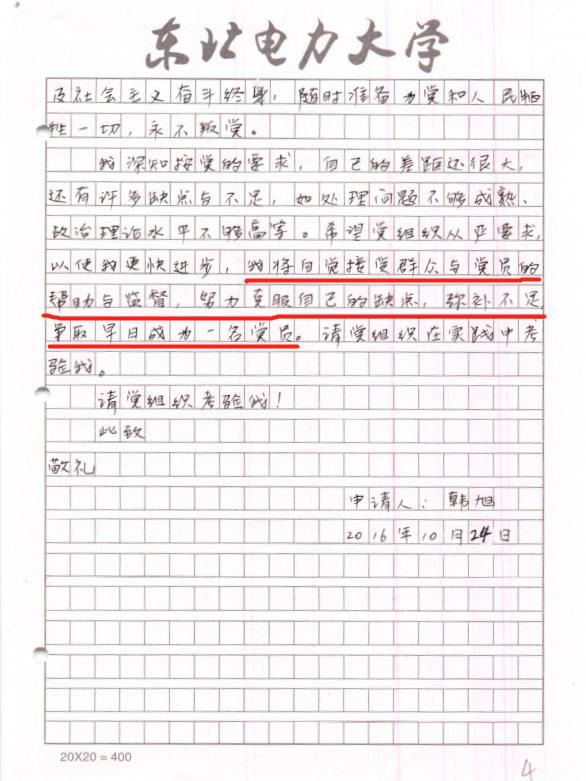 东北电力大学
及社会主义奋斗终身，随时准备为党和人民牺
牲一切，永不叛党。
我深知按党的要求，自己的差距还很大，
还有许多缺点与不足，如处理问题不够成熟、
政治理论水平不够高等。希望党组织从严要求，
以便我更快进步，我将自觉接受群众与党员的
帮助与监督，努力克服自己的缺点，弥补不足
争取早日成为一名党员。请党组织在实践中考
验我。
请党组织考验我！
此致
敬礼
申请人：韩旭
2016年10月24日
20X20=400
4